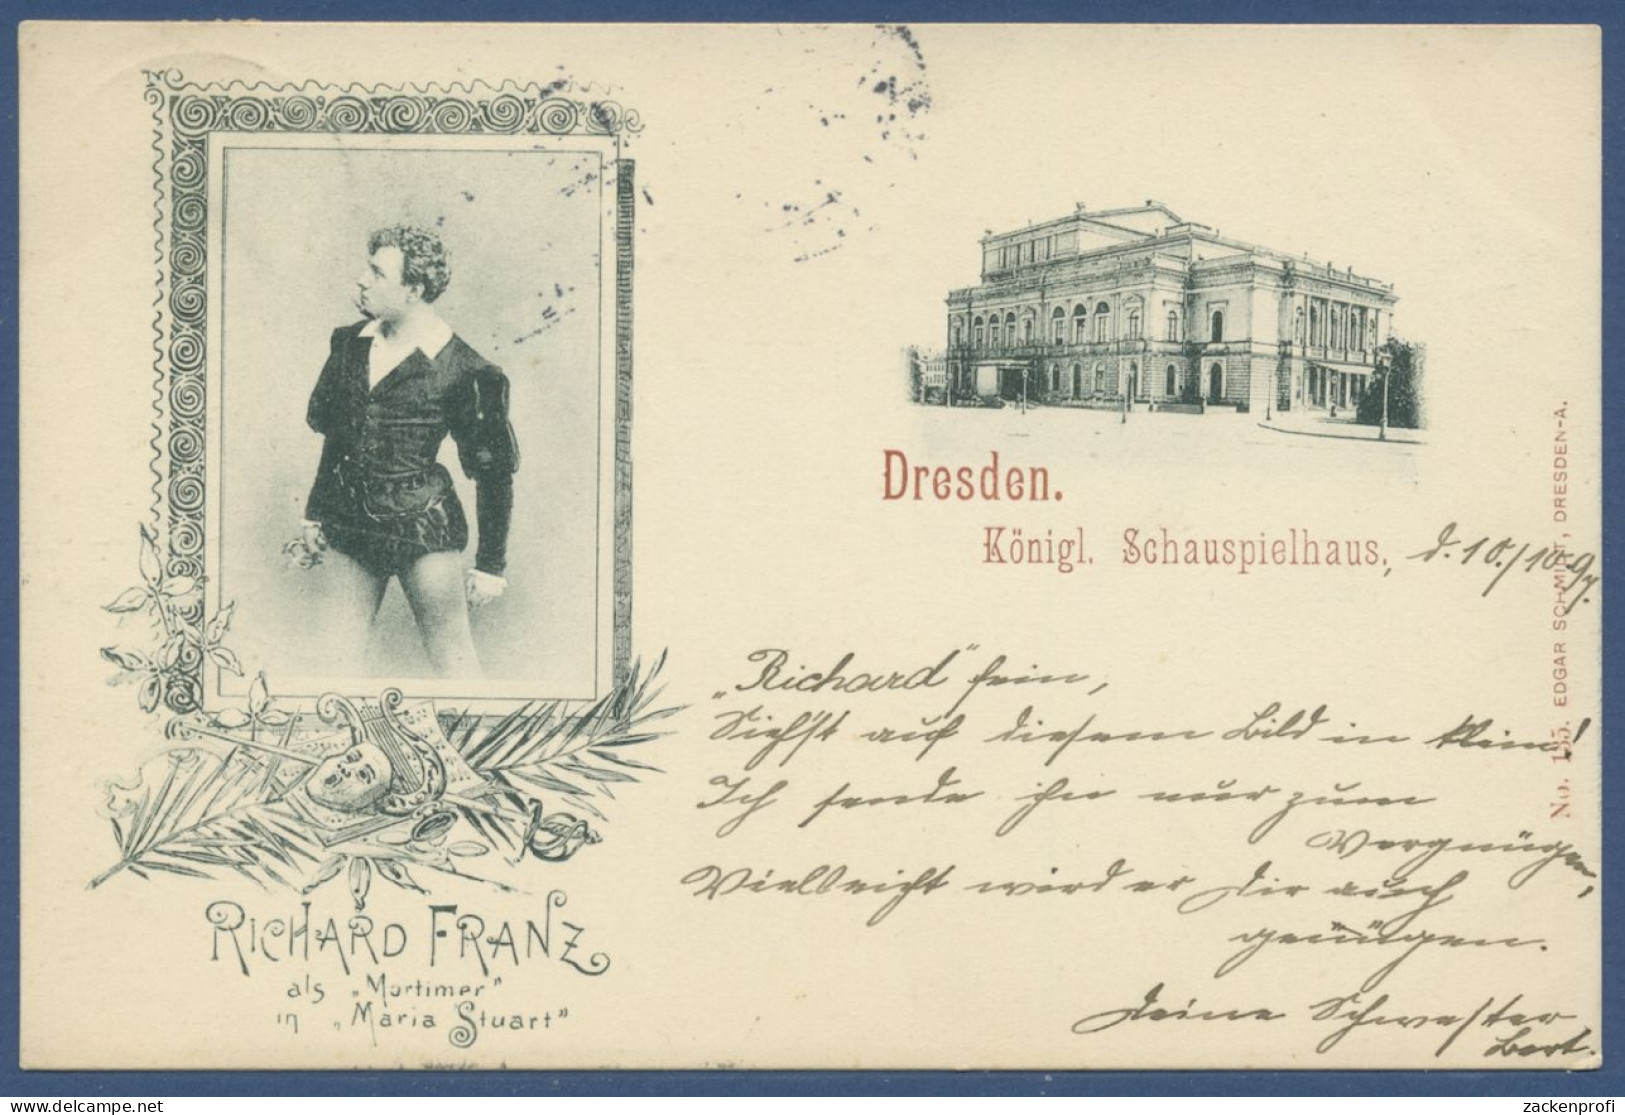 Dresden.
Königl. Schauspielhaus, d. 10./10.97.
No. 155. EDGAR SCHMIDT, DRESDEN-A.
„Richard“ fein,
Siehst auf diesem Bild in klein!
Ich sende ihn nur zum
Vergnügen,
Vielleicht wird er Dir auch
genügen.
Deine Schwester
RICHARD FRANZ
als „Mortimer“
in „Maria Stuart“
zackenprofi
delcampe.net